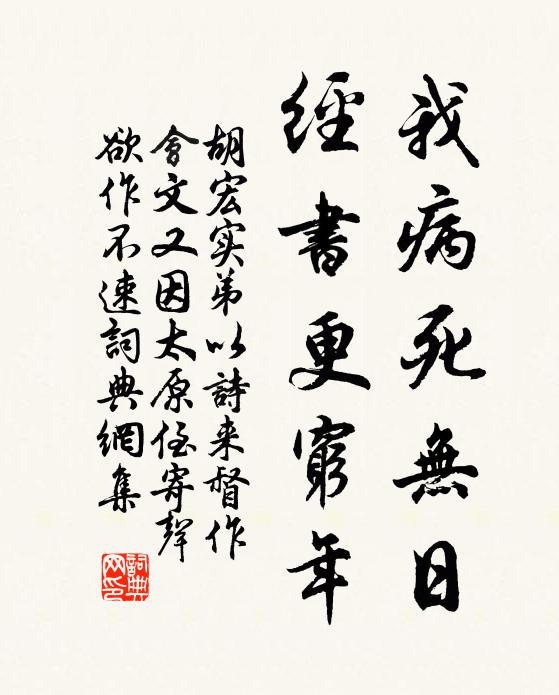 我病死無日
經書更窮年
胡宏实弟以詩来督作
會文又因太原侄寄聲
欲作不速詞典網集
詞典网印